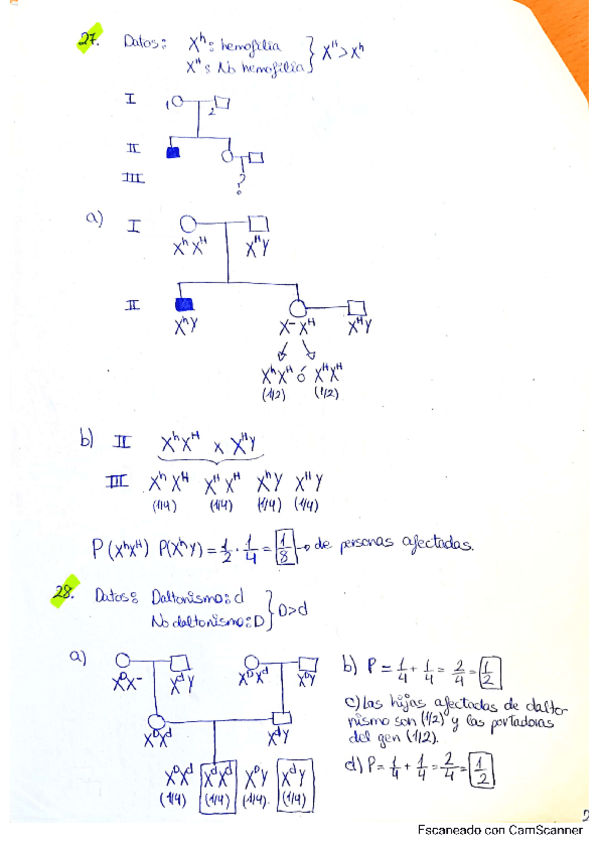 27. Datos: Xʰ: hemofilia } Xᴴ > Xʰ
Xᴴ: No hemofilia
I 1 2
II
III ?
a) I
XʰXᴴ XᴴY
II
XʰY X⁻Xᴴ XᴴY
XʰXᴴ ó XᴴXᴴ
(1/2) (1/2)
b) II XʰXᴴ x XᴴY
III XʰXᴴ XᴴXᴴ XʰY XᴴY
(1/4) (1/4) (1/4) (1/4)
P(XʰXᴴ) P(XʰY) = 1/2 · 1/4 = 1/8 → de personas afectadas.
28. Datos: Daltonismo: d } D>d
No daltonismo: D
a)
XᴰX⁻ XᵈY XᴰXᵈ XᴰY
XᴰXᵈ XᵈY
XᴰXᵈ XᵈXᵈ XᴰY XᵈY
(1/4) (1/4) (1/4) (1/4)
b) P = 1/4 + 1/4 = 2/4 = 1/2
c) Las hijas afectadas de dalto-
nismo son (1/2) y las portadoras
del gen (1/2).
d) P = 1/4 + 1/4 = 2/4 = 1/2
Escaneado con CamScanner